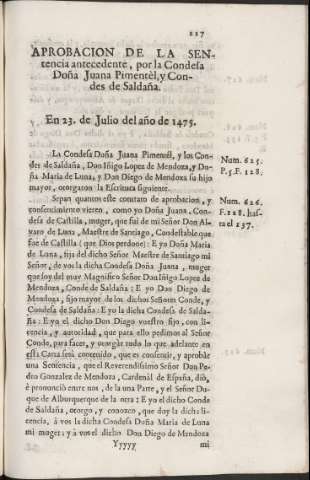 227
APROBACION DE LA SEN-
tencia antecedente, por la Condesa
Doña Juana Pimentèl, y Con-
des de Saldaña.
En 23. de Julio del año de 1475.
La Condesa Doña Juana Pimentèl, y los Con-
des de Saldaña, Don Iñigo Lopez de Mendoza, y Do-
ña Maria de Luna, y Don Diego de Mendoza su hijo
mayor, otorgaron la Escritura siguiente.
Num. 625.
P. 5. F. 128.
Sepan quantos este contrato de aprobacion, y
consentimiento vieren, como yo Doña Juana, Con-
desa de Castilla, muger, que fui de mi Señor Don Al-
varo de Luna, Maestre de Santiago, Condestable que
fue de Castilla (que Dios perdone): E yo Doña Maria
de Luna, fija del dicho Señor Maestre de Santiago mi
Señor, de vos la dicha Condesa Doña Juana, muger
que soy del muy Magnifico Señor Don Iñigo Lopez de
Mendoza, Conde de Saldaña: E yo Don Diego de
Mendoza, fijo mayor de los dichos Señores Conde, y
Condesa de Saldaña: E yo la dicha Condesa de Salda-
ña: E yo el dicho Don Diego vuestro fijo, con li-
cencia, y autoridad, que para ello pedimos al Señor
Conde, para facer, y otorgar todo lo que adelante en
esta Carta será contenido, que es consentir, y aproblar
una Sentencia, que el Reverendissimo Señor Don Pe-
dro Gonzalez de Mendoza, Cardenàl de España, diò,
è pronunciò entre nos, de la una Parte, y el Señor Du-
que de Alburquerque de la otra: E yo el dicho Conde
de Saldaña, otorgo, y conozco, que doy la dicha li-
cencia, à vos la dicha Condesa Doña Maria de Luna
mi muger: y à vos el dicho Don Diego de Mendoza
Num. 626.
F. 128. has-
ta el 137.
Yyyyy
mi